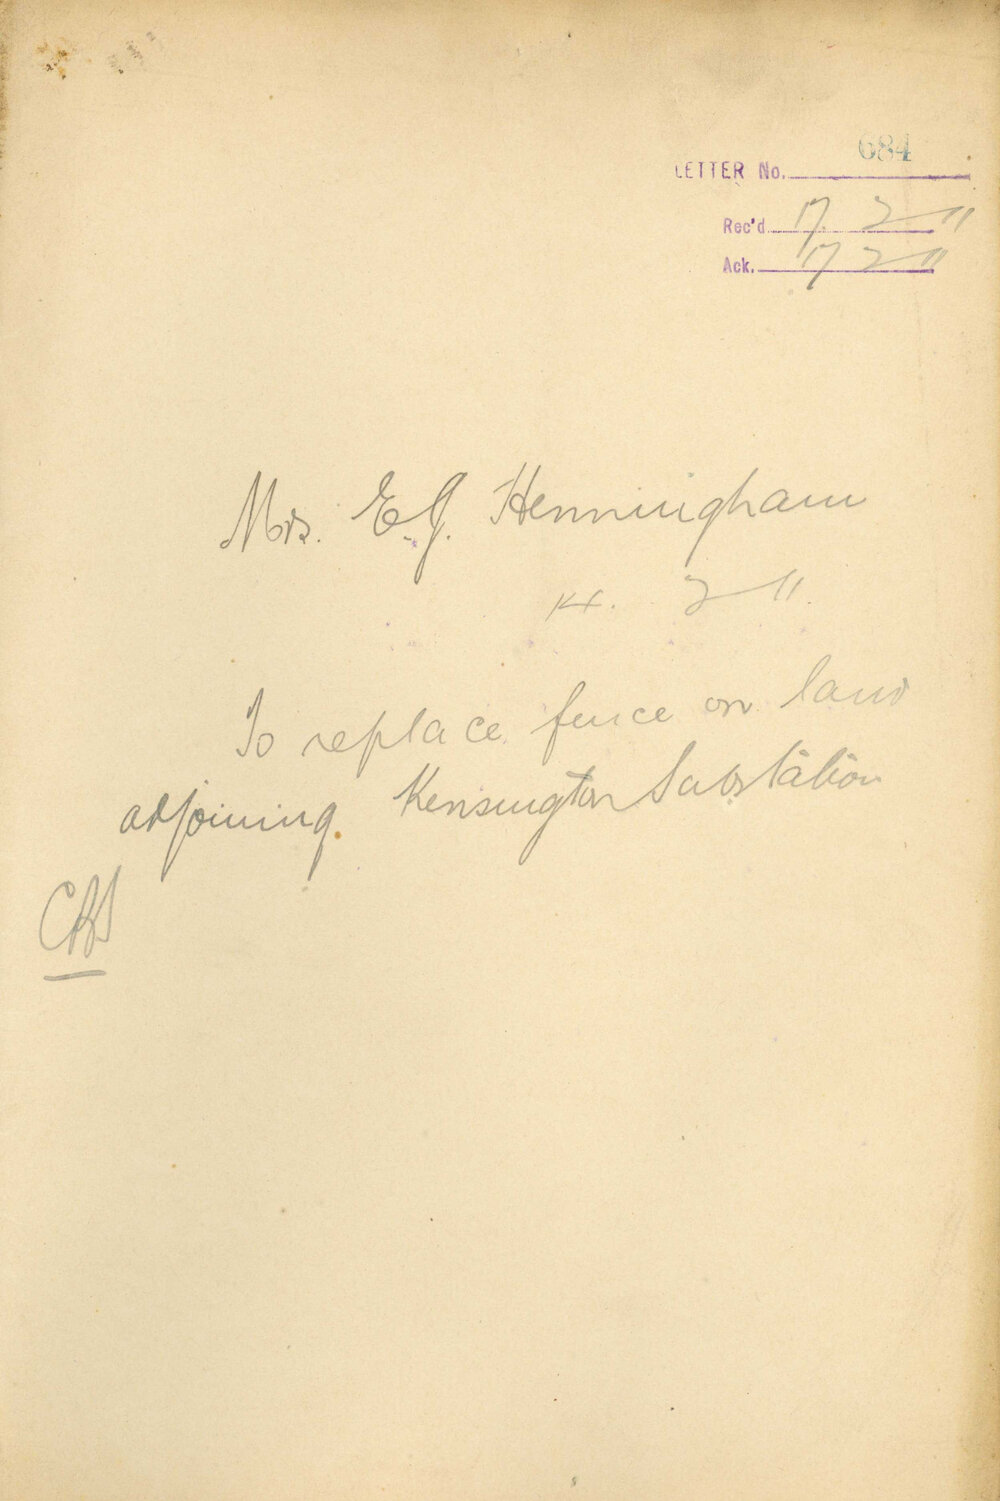 684
LETTER No.
Rec'd 17. 2 11
Ack. 17 2 11
Mrs. E.J. Henningham
14. 2 11.
To replace fence on land
adjoining Kensington Substation